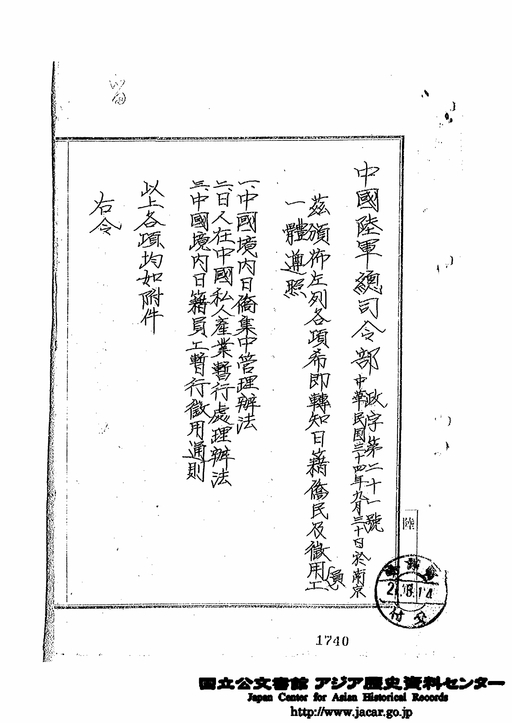 中國陸軍總司令部
政字第二十一號
中華民國三十四年九月三十日於南京
茲頒佈左列各項希即轉知日籍僑民及徵用員工
一體遵照
一、中國境內日僑集中管理辦法
二、日人在中國私人產業暫行處理辦法
三、中國境內日籍員工暫行徵用通則
以上各項均如附件
右令
陸
1740
国立公文書館 アジア歴史資料センター
Japan Center for Asian Historical Records
http://www.jacar.go.jp